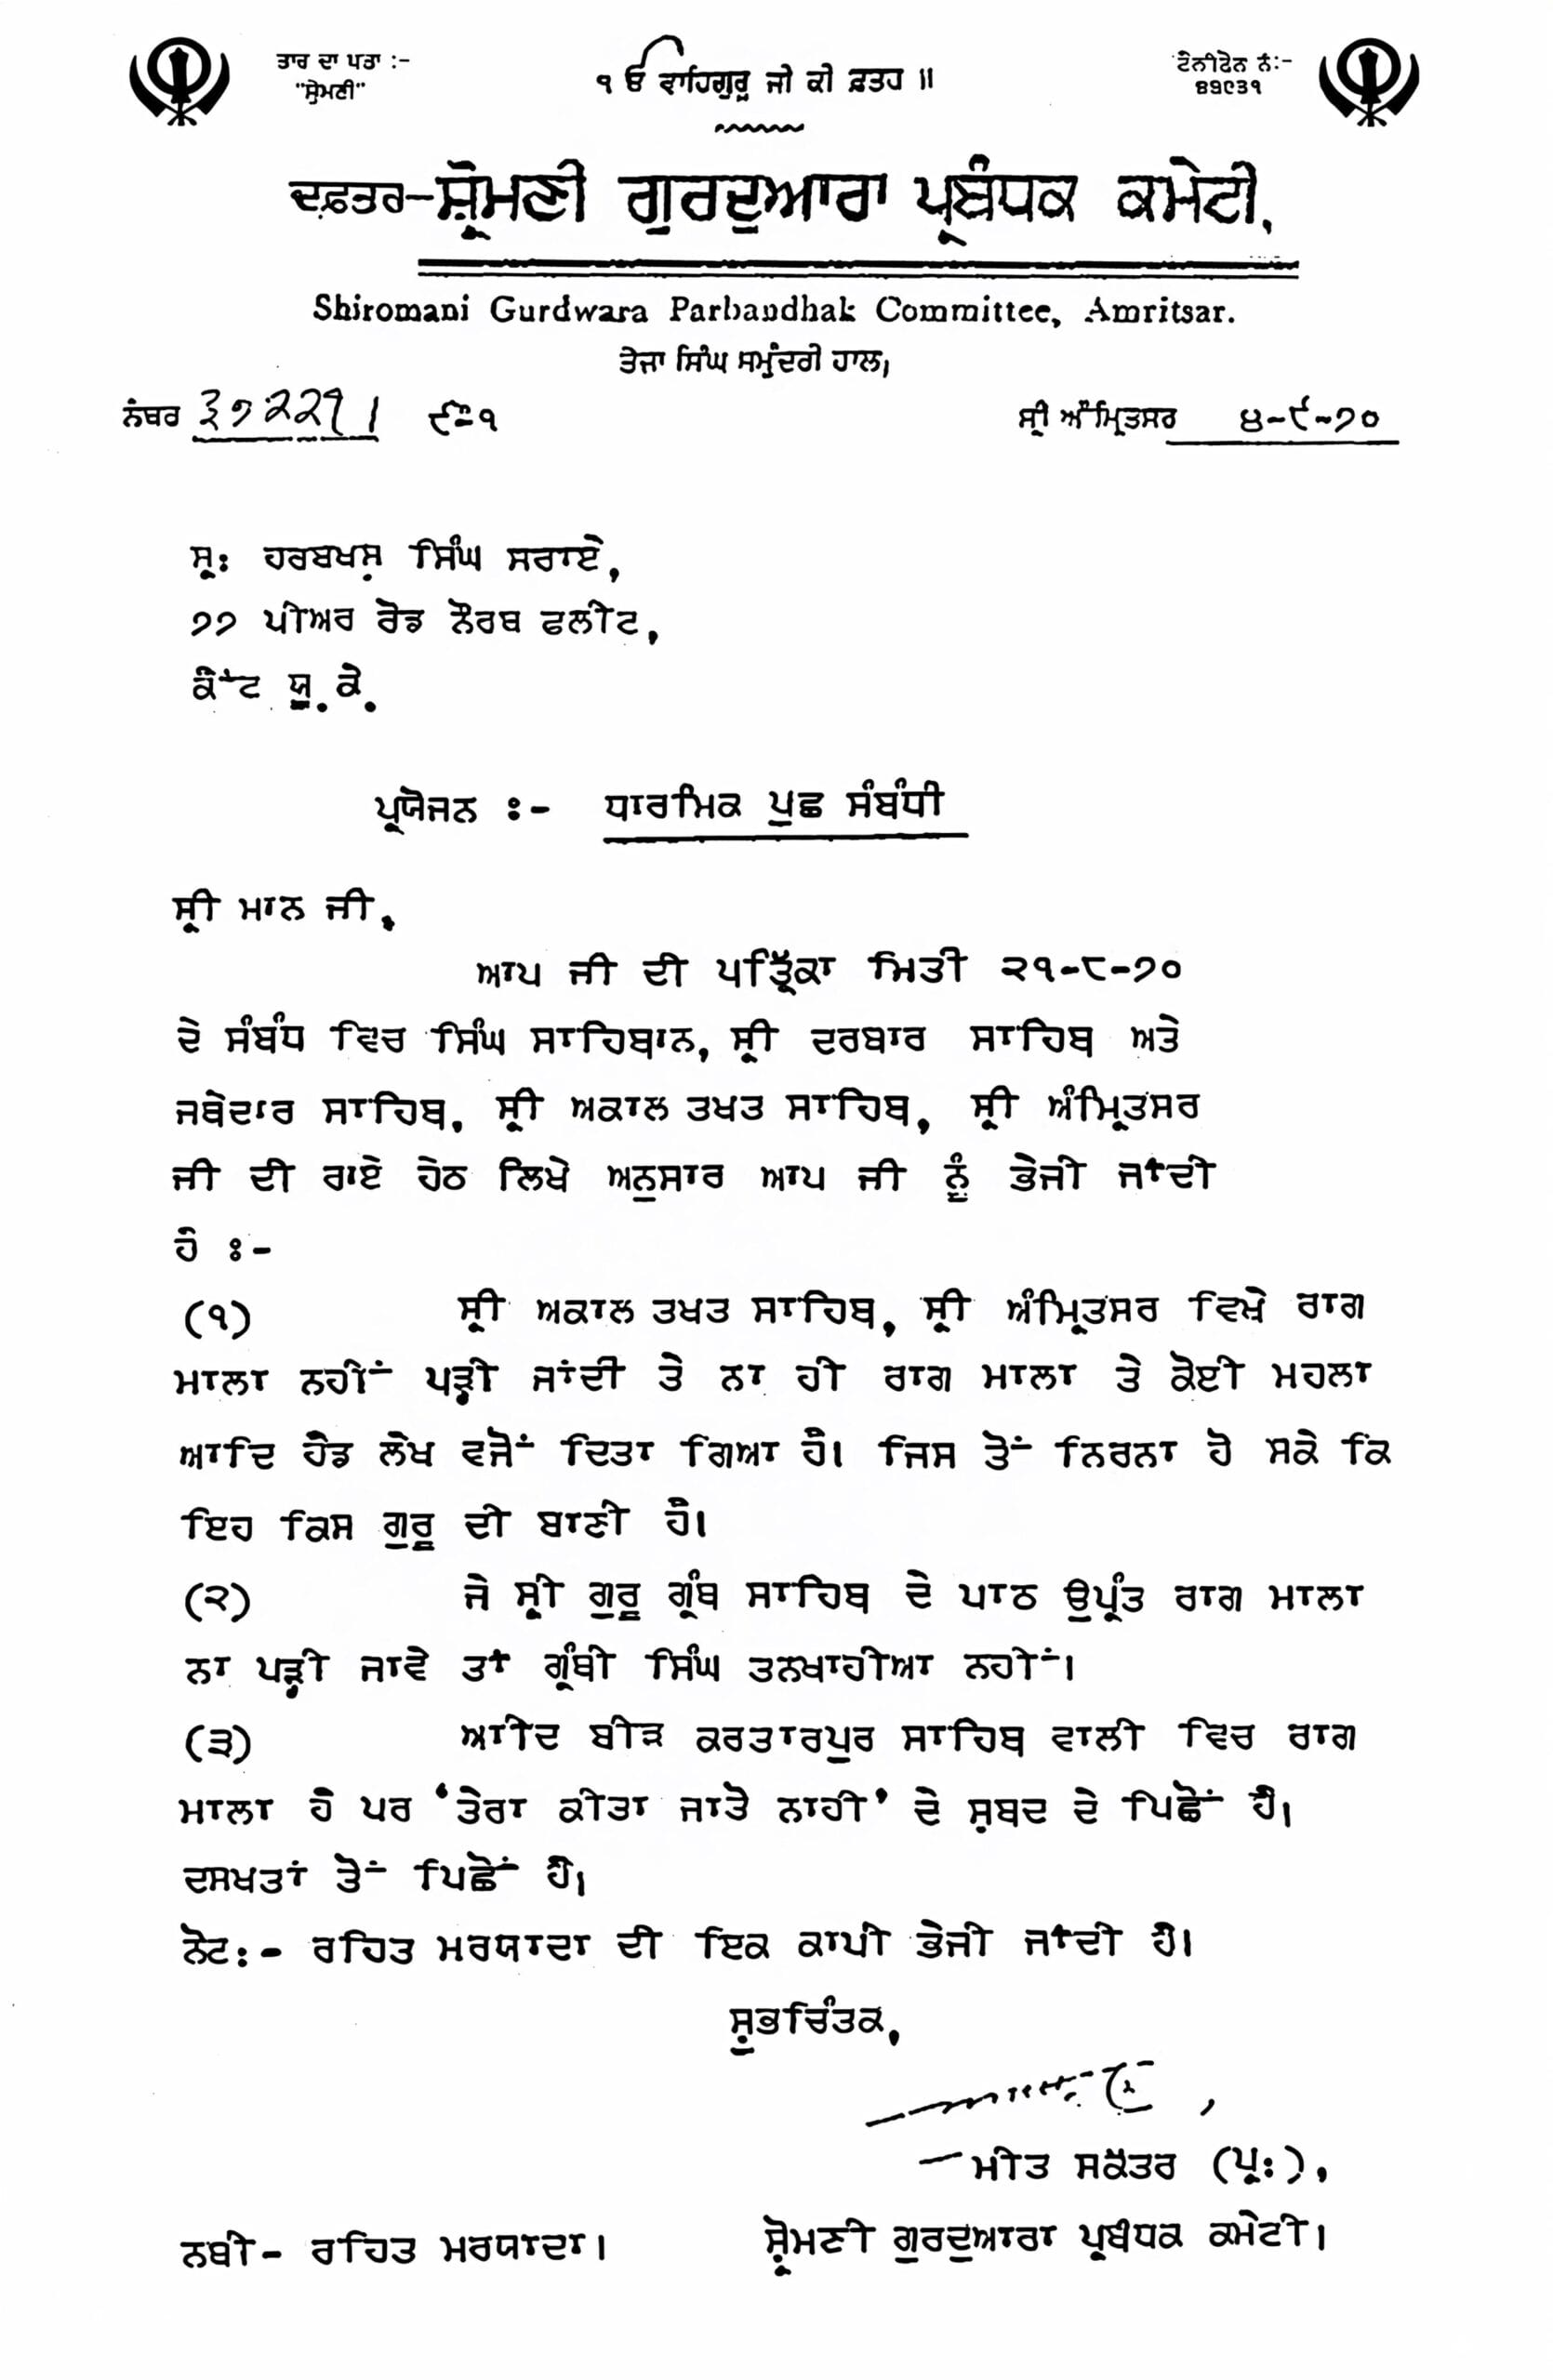 ਤਾਰ ਦਾ ਪਤਾ :-
"ਸ਼੍ਰੋਮਣੀ"
੧ ਓ ਵਾਹਿਗੁਰੂ ਜੀ ਕੀ ਫ਼ਤਹ ॥
ਟੈਲੀਫੋਨ ਨੰ:-
੪੭੯੩੧
ਦਫ਼ਤਰ-ਸ਼੍ਰੋਮਣੀ ਗੁਰਦੁਆਰਾ ਪ੍ਰਬੰਧਕ ਕਮੇਟੀ,
Shiromani Gurdwara Parbandhak Committee, Amritsar.
ਤੇਜਾ ਸਿੰਘ ਸਮੁੰਦਰੀ ਹਾਲ,
ਨੰਬਰ ੩੭੨੨੧ ।
ਸ੍ਰੀ ਅੰਮ੍ਰਿਤਸਰ ੪-੯-੭੦
ਸ੍ਰ: ਹਰਬਖਸ਼ ਸਿੰਘ ਸਰਾਏ,
੭੭ ਪੀਅਰ ਰੋਡ ਨੌਰਥ ਫਲੀਟ,
ਕੈਂਟ ਯੂ. ਕੇ.
ਪ੍ਰਯੋਜਨ :- ਧਾਰਮਿਕ ਪੁਛ ਸੰਬੰਧੀ
ਸ੍ਰੀ ਮਾਨ ਜੀ,
ਆਪ ਜੀ ਦੀ ਪਤ੍ਰਿੱਕਾ ਮਿਤੀ ੨੧-੮-੭੦
ਦੇ ਸੰਬੰਧ ਵਿਚ ਸਿੰਘ ਸਾਹਿਬਾਨ, ਸ੍ਰੀ ਦਰਬਾਰ ਸਾਹਿਬ ਅਤੇ
ਜਥੇਦਾਰ ਸਾਹਿਬ, ਸ੍ਰੀ ਅਕਾਲ ਤਖਤ ਸਾਹਿਬ, ਸ੍ਰੀ ਅੰਮ੍ਰਿਤਸਰ
ਜੀ ਦੀ ਰਾਏ ਹੇਠ ਲਿਖੇ ਅਨੁਸਾਰ ਆਪ ਜੀ ਨੂੰ ਭੇਜੀ ਜਾਂਦੀ
ਹੈ :-
(੧) ਸ੍ਰੀ ਅਕਾਲ ਤਖਤ ਸਾਹਿਬ, ਸ੍ਰੀ ਅੰਮ੍ਰਿਤਸਰ ਵਿਖੇ ਰਾਗ
ਮਾਲਾ ਨਹੀਂ ਪੜ੍ਹੀ ਜਾਂਦੀ ਤੇ ਨਾ ਹੀ ਰਾਗ ਮਾਲਾ ਤੇ ਕੋਈ ਮਹਲਾ
ਆਦਿ ਹੈਡ ਲੇਖ ਵਜੋਂ ਦਿਤਾ ਗਿਆ ਹੈ। ਜਿਸ ਤੋਂ ਨਿਰਨਾ ਹੋ ਸਕੇ ਕਿ
ਇਹ ਕਿਸ ਗੁਰੂ ਦੀ ਬਾਣੀ ਹੈ।
(੨) ਜੇ ਸ੍ਰੀ ਗੁਰੂ ਗ੍ਰੰਥ ਸਾਹਿਬ ਦੇ ਪਾਠ ਉਪ੍ਰੰਤ ਰਾਗ ਮਾਲਾ
ਨਾ ਪੜ੍ਹੀ ਜਾਵੇ ਤਾਂ ਗ੍ਰੰਥੀ ਸਿੰਘ ਤਨਖਾਹੀਆ ਨਹੀਂ।
(੩) ਆਦਿ ਬੀੜ ਕਰਤਾਰਪੁਰ ਸਾਹਿਬ ਵਾਲੀ ਵਿਚ ਰਾਗ
ਮਾਲਾ ਹੈ ਪਰ 'ਤੇਰਾ ਕੀਤਾ ਜਾਤੋ ਨਾਹੀ' ਦੇ ਸ਼ਬਦ ਦੇ ਪਿਛੋਂ ਹੈ।
ਦਸਖਤਾਂ ਤੋਂ ਪਿਛੋਂ ਹੈ।
ਨੋਟ:- ਰਹਿਤ ਮਰਯਾਦਾ ਦੀ ਇਕ ਕਾਪੀ ਭੇਜੀ ਜਾਂਦੀ ਹੈ।
ਸ਼ੁਭਚਿੰਤਕ,
ਮੀਤ ਸਕੱਤਰ (ਪ੍ਰ:),
ਨਥੀ- ਰਹਿਤ ਮਰਯਾਦਾ। ਸ਼੍ਰੋਮਣੀ ਗੁਰਦੁਆਰਾ ਪ੍ਰਬੰਧਕ ਕਮੇਟੀ।